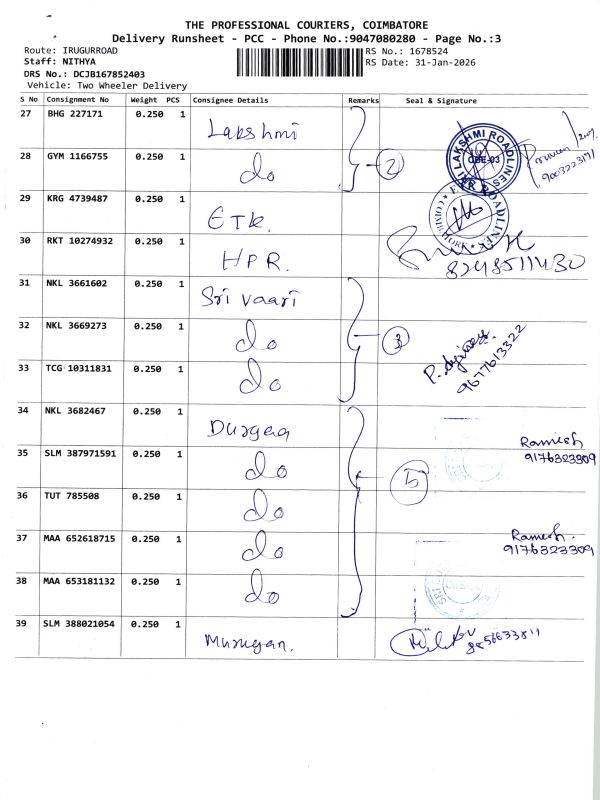 THE PROFESSIONAL COURIERS, COIMBATORE
Delivery Runsheet - PCC - Phone No.:9047080280 - Page No.:3
Route: IRUGURROAD
RS No.: 1678524
Staff: NITHYA
RS Date: 31-Jan-2026
DRS No.: DCJB167852403
Vehicle: Two Wheeler Delivery
S No Consignment No Weight PCS Consignee Details Remarks Seal & Signature
27 BHG 227171 0.250 1 Lakshmi
28 GYM 1166755 0.250 1 do 2
LAKSHMI ROADLINES
CBE-03
9003223171
29 KRG 4739487 0.250 1 ETK.
30 RKT 10274932 0.250 1 HPR.
ROADLINES
8248511430
31 NKL 3661602 0.250 1 Sri vaari
32 NKL 3669273 0.250 1 do 3
33 TCG 10311831 0.250 1 do
9677613322
34 NKL 3682467 0.250 1 Durgaa
Ramesh
9176323309
35 SLM 387971591 0.250 1 do 5
36 TUT 785508 0.250 1 do
37 MAA 652618715 0.250 1 do
Ramesh.
9176323309
38 MAA 653181132 0.250 1 do
39 SLM 388021054 0.250 1 Murugan.